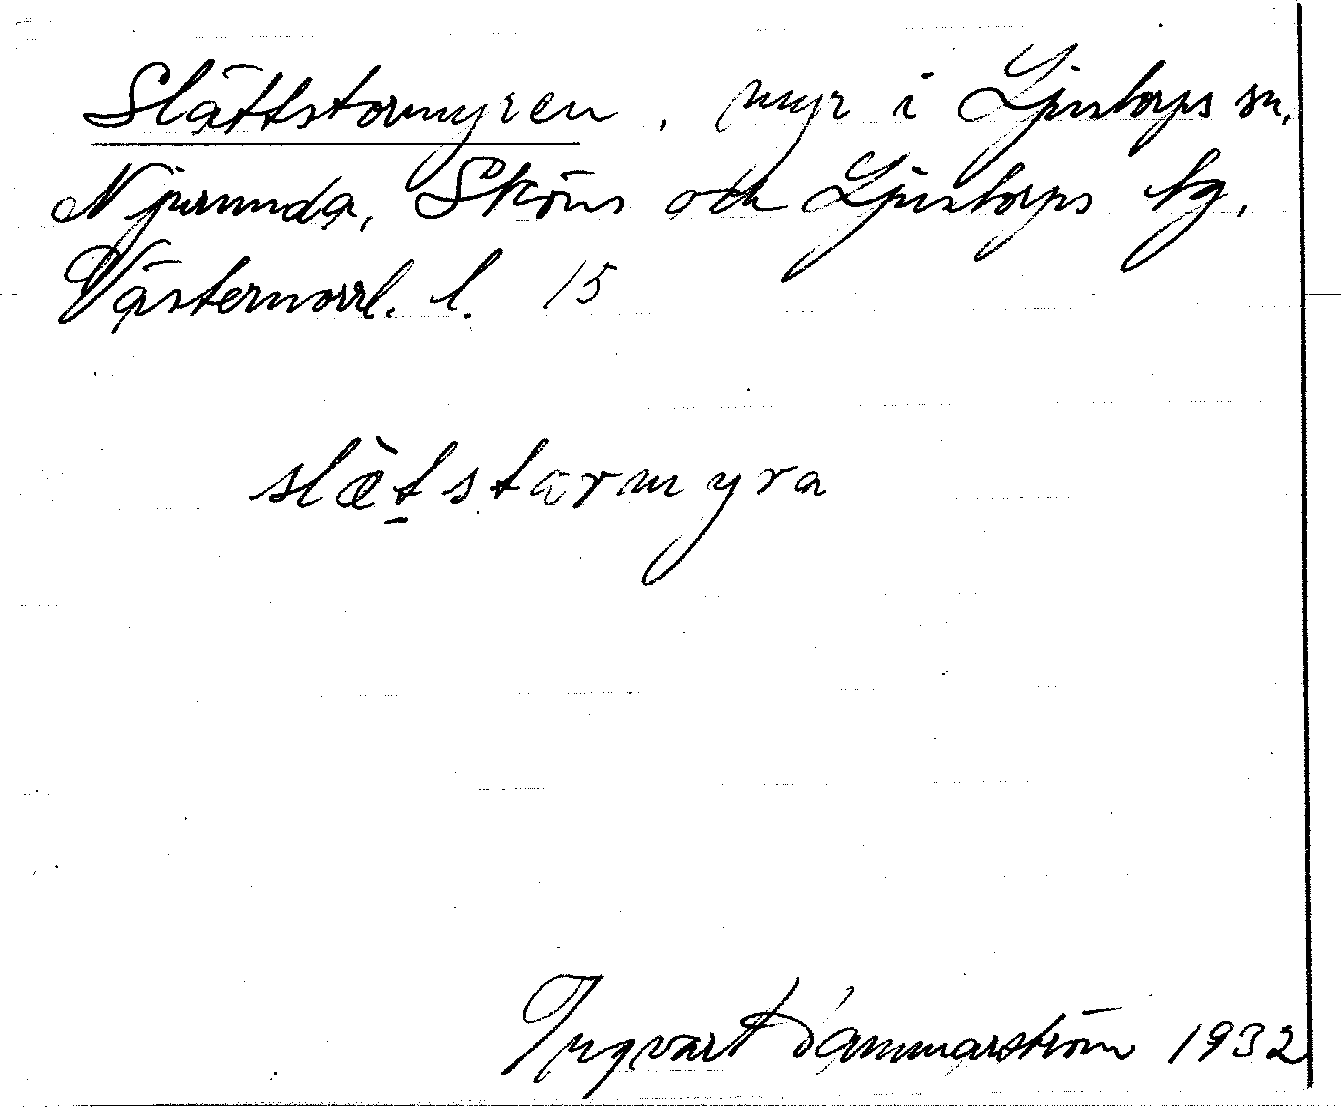 Slättstormyren, myr i Ljustorps sn,
Njurunda, Sköns och Ljustorps tg,
Västernorrl. l. 15
slæ̀tstarmyra
Ingvart Dammarström 1932